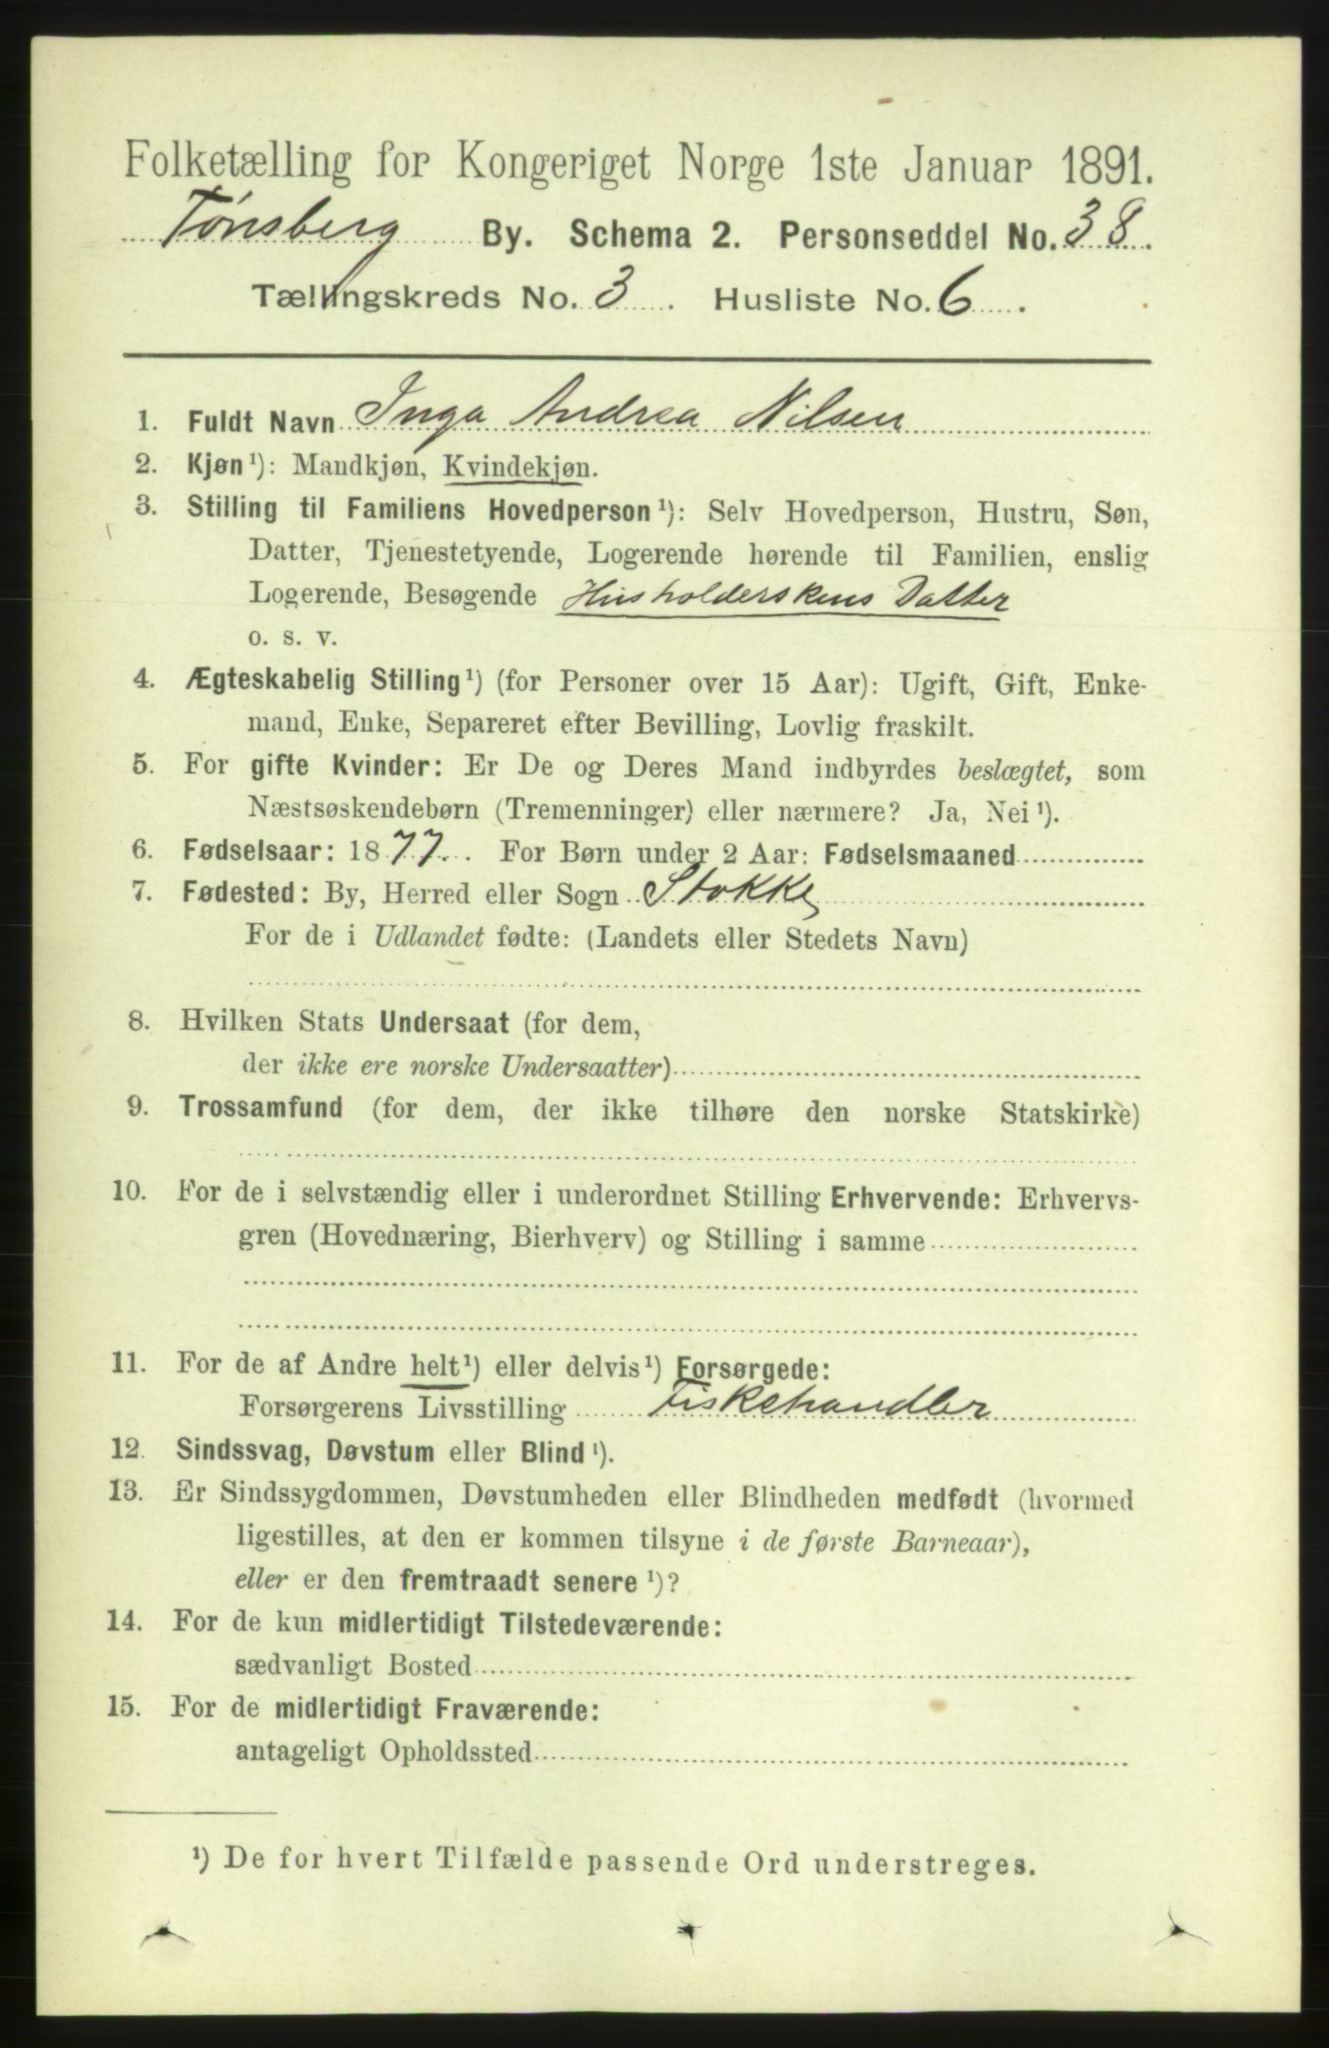 Folketælling for Kongeriget Norge 1ste Januar 1891.
Tønsberg By. Schema 2. Personseddel No. 38.
Tællingskreds No. 3. Husliste No. 6.
1. Fuldt Navn Inga Andrea Nilsen
2. Kjøn ¹): Mandkjøn, Kvindekjøn.
3. Stilling til Familiens Hovedperson ¹): Selv Hovedperson, Hustru, Søn,
Datter, Tjenestetyende, Logerende hørende til Familien, enslig
Logerende, Besøgende Husholderskens Datter
o. s. v.
4. Ægteskabelig Stilling ¹) (for Personer over 15 Aar): Ugift, Gift, Enke-
mand, Enke, Separeret efter Bevilling, Lovlig fraskilt.
5. For gifte Kvinder: Er De og Deres Mand indbyrdes beslægtet, som
Næstsøskendebørn (Tremenninger) eller nærmere? Ja, Nei ¹).
6. Fødselsaar: 1877. For Børn under 2 Aar: Fødselsmaaned
7. Fødested: By, Herred eller Sogn Stokke
For de i Udlandet fødte: (Landets eller Stedets Navn)
8. Hvilken Stats Undersaat (for dem,
der ikke ere norske Undersaatter)
9. Trossamfund (for dem, der ikke tilhøre den norske Statskirke)
10. For de i selvstændig eller i underordnet Stilling Erhvervende: Erhvervs-
gren (Hovednæring, Bierhverv) og Stilling i samme
11. For de af Andre helt ¹) eller delvis ¹) Forsørgede:
Forsørgerens Livsstilling Fiskehandler
12. Sindssvag, Døvstum eller Blind ¹).
13. Er Sindssygdommen, Døvstumheden eller Blindheden medfødt (hvormed
ligestilles, at den er kommen tilsyne i de første Barneaar),
eller er den fremtraadt senere ¹)?
14. For de kun midlertidigt Tilstedeværende:
sædvanligt Bosted
15. For de midlertidigt Fraværende:
antageligt Opholdssted
¹) De for hvert Tilfælde passende Ord understreges.